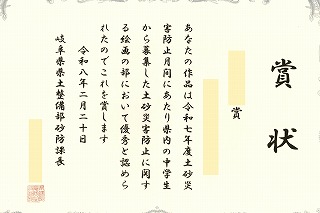 賞状
賞
あなたの作品は令和七年度土砂災
害防止月間にあたり県内の中学生
から募集した土砂災害防止に関す
る絵画の部において優秀と認めら
れたのでこれを賞します
令和八年二月二十日
岐阜県県土整備部砂防課長